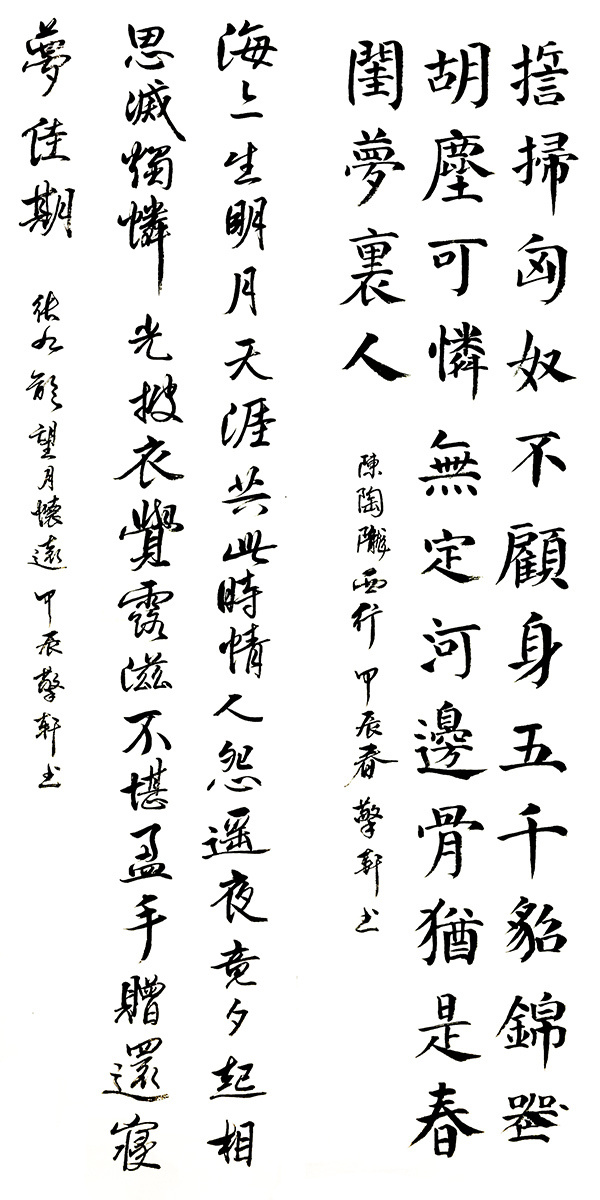 誓掃匈奴不顧身五千貂錦喪
胡塵可憐無定河邊骨猶是春
閨夢裏人
陳陶隴西行 甲辰春 擎軒书
海上生明月天涯共此時情人怨遥夜竟夕起相
思滅燭憐光披衣覺露滋不堪盈手贈還寢
夢佳期
張九齡望月懷遠 甲辰擎軒书